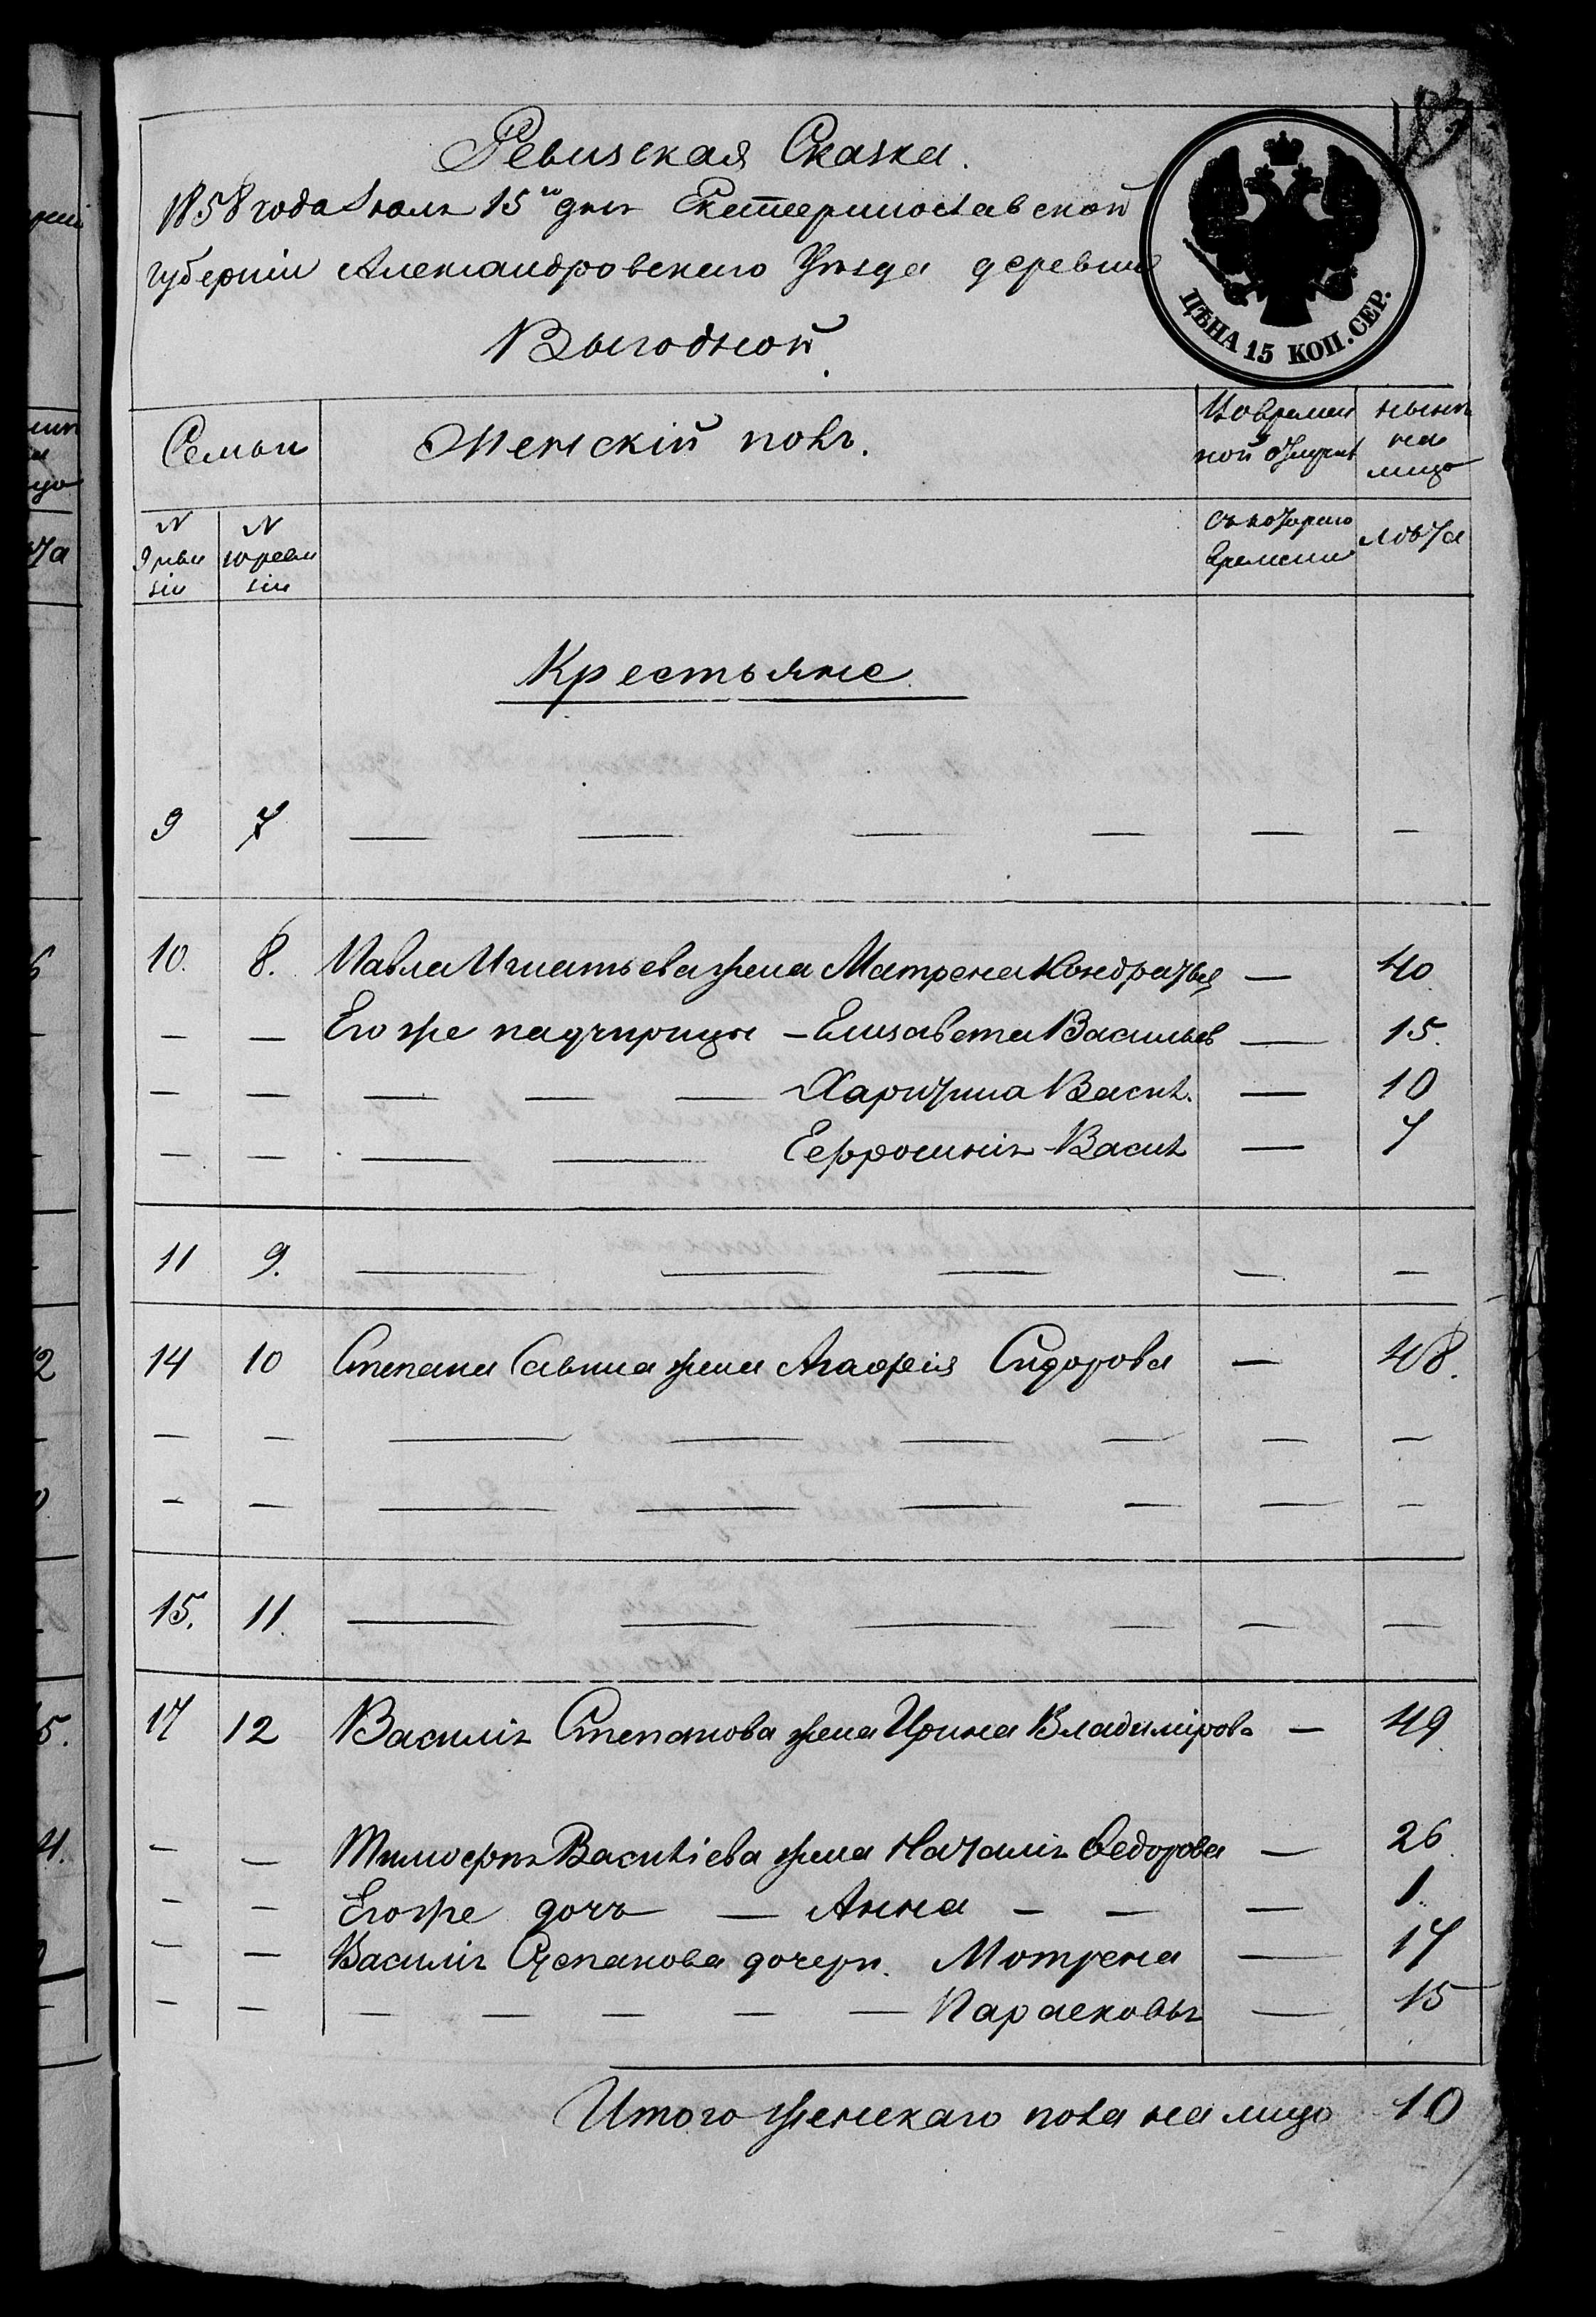 183
Ревизская Сказка.
1858 года Іюля 15го дня Екатеринославской
губерніи Александровскаго Уѣзда деревни
Выгодной.
ЦѢНА 15 КОП. СЕР.
Семьи Женскій полъ. Во времен нынѣ
ной отлучкѣ на
лицо
N N Съ котораго лѣта
9 реви 10 реви времени
зіи зіи
Крестьяне
9 7 — — — — — —
10. 8. Павла Игнатьева жена Матрена Кондратьев — 40
— — Его же падчирицы — Елизавета Васильев — 15.
— — — — — Харитина Васил. — 10
— — — — Ефросинія Васил — 7
11 9. — — — — —
14 10 Степана Савина жена Агафія Сидорова — 48.
— — — — — — — —
— — — — — — — —
15. 11. — — — — — —
17 12 Василія Степанова жена Ирина Владимірова — 49
— — Тимофея Василіева жена Наталія Федорова — 26
— — Его же дочь — Анна — — — 1.
— — Василія Степанова дочери. Мотрена — 17
— — — — — — — Парасковья — 15
Итого женскаго пола на лицо 10